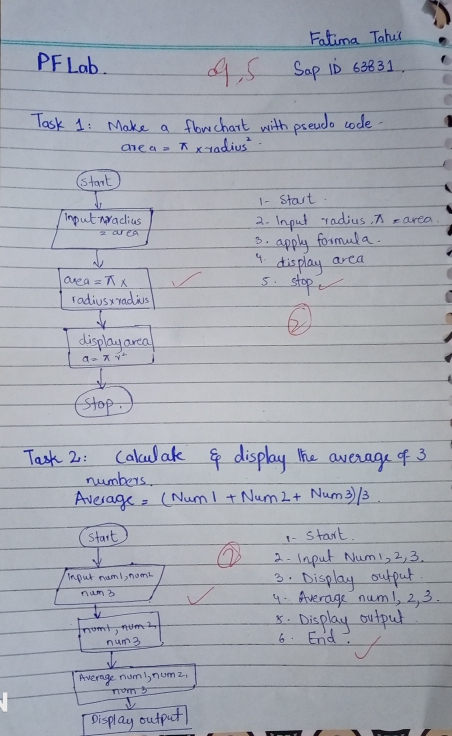 Fatima Tahir
PF Lab.
9.5
Sap ID 63831.
Task 1: Make a flowchart with pseudo code.
area = π x radius².
Start
Input π radius
= area
area = π x
radius x radius
display area
a = π r²
Stop.
1- Start.
2. Input radius, π = area.
3. apply formula.
4. display area
5. stop.
2
Task 2: Calculate & display the average of 3
numbers.
Average = (Num1 + Num2 + Num3)/3.
Start
Input num1, num2
num 3
num1, num 2,
num3
Average num1, num2,
num 3
Display output
2
1- Start.
2- Input Num1,2,3.
3. Display output.
4. Average num1, 2, 3.
5. Display output
6. End.
N